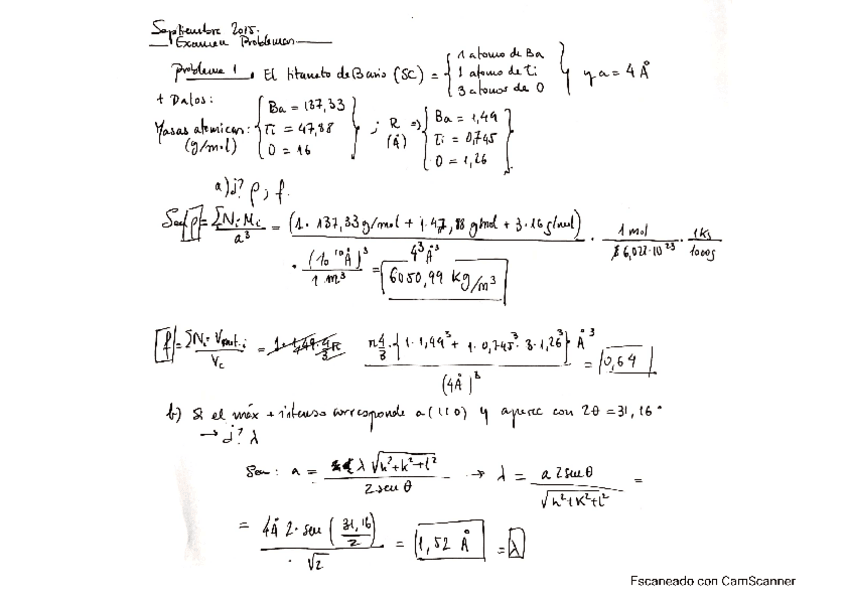 Septiembre 2015.
Examen Problemas
Problema 1. El titanato de Bario (SC) = { 1 atomo de Ba
1 atomo de Ti
3 atomos de O } y a = 4 Å
+ Datos:
Masas atomicas: (g/mol) { Ba = 137,33
Ti = 47,88
O = 16 } ; R (Å) => { Ba = 1,49
Ti = 0,745
O = 1,26 }
a) ¿? ρ ; f.
[ρ] = ΣNi Mi / a³ = (1 · 137,33 g/mol + 1 · 47,88 g/mol + 3 · 16 g/mol) / 4³ Å³ · 1 mol / 6,022 · 10²³ · 1 kg / 1000 g
· (10¹⁰ Å)³ / 1 m³ = 6050,99 kg/m³
[f] = ΣNi · Vat.i / Vc = π 4/3 · { 1 · 1,49³ + 1 · 0,745³ · 3 · 1,26³ } Å³ / (4Å)³ = 0,64
b) Si el máx + intenso corresponde a (110) y aparece con 2θ = 31,16°
→ ¿? λ
Sea: a = λ √h²+k²+l² / 2 sen θ → λ = a 2 sen θ / √h²+k²+l² =
= 4Å 2 · sen (31,16 / 2) / √2 = 1,52 Å = λ
Escaneado con CamScanner